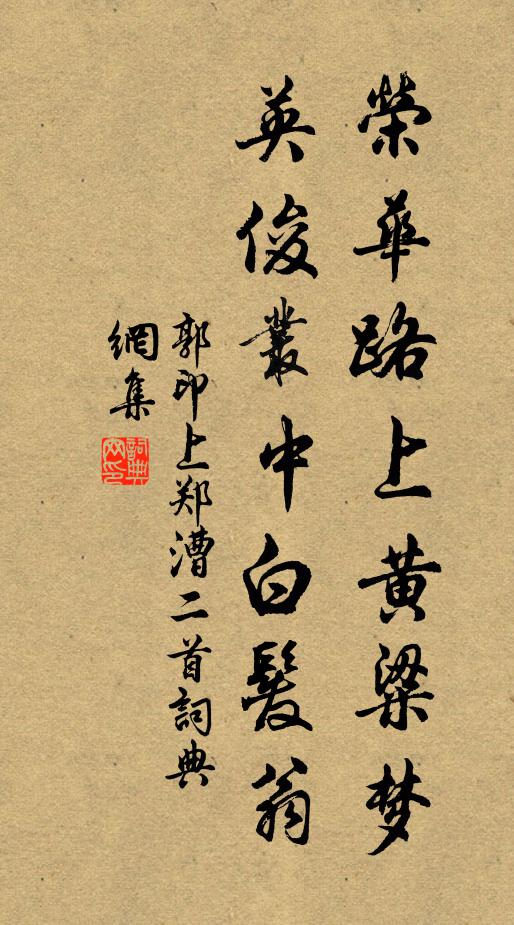 榮華路上黄粱梦
英俊叢中白髮翁
郭印上郑漕二首詞典
網集
詞典網印